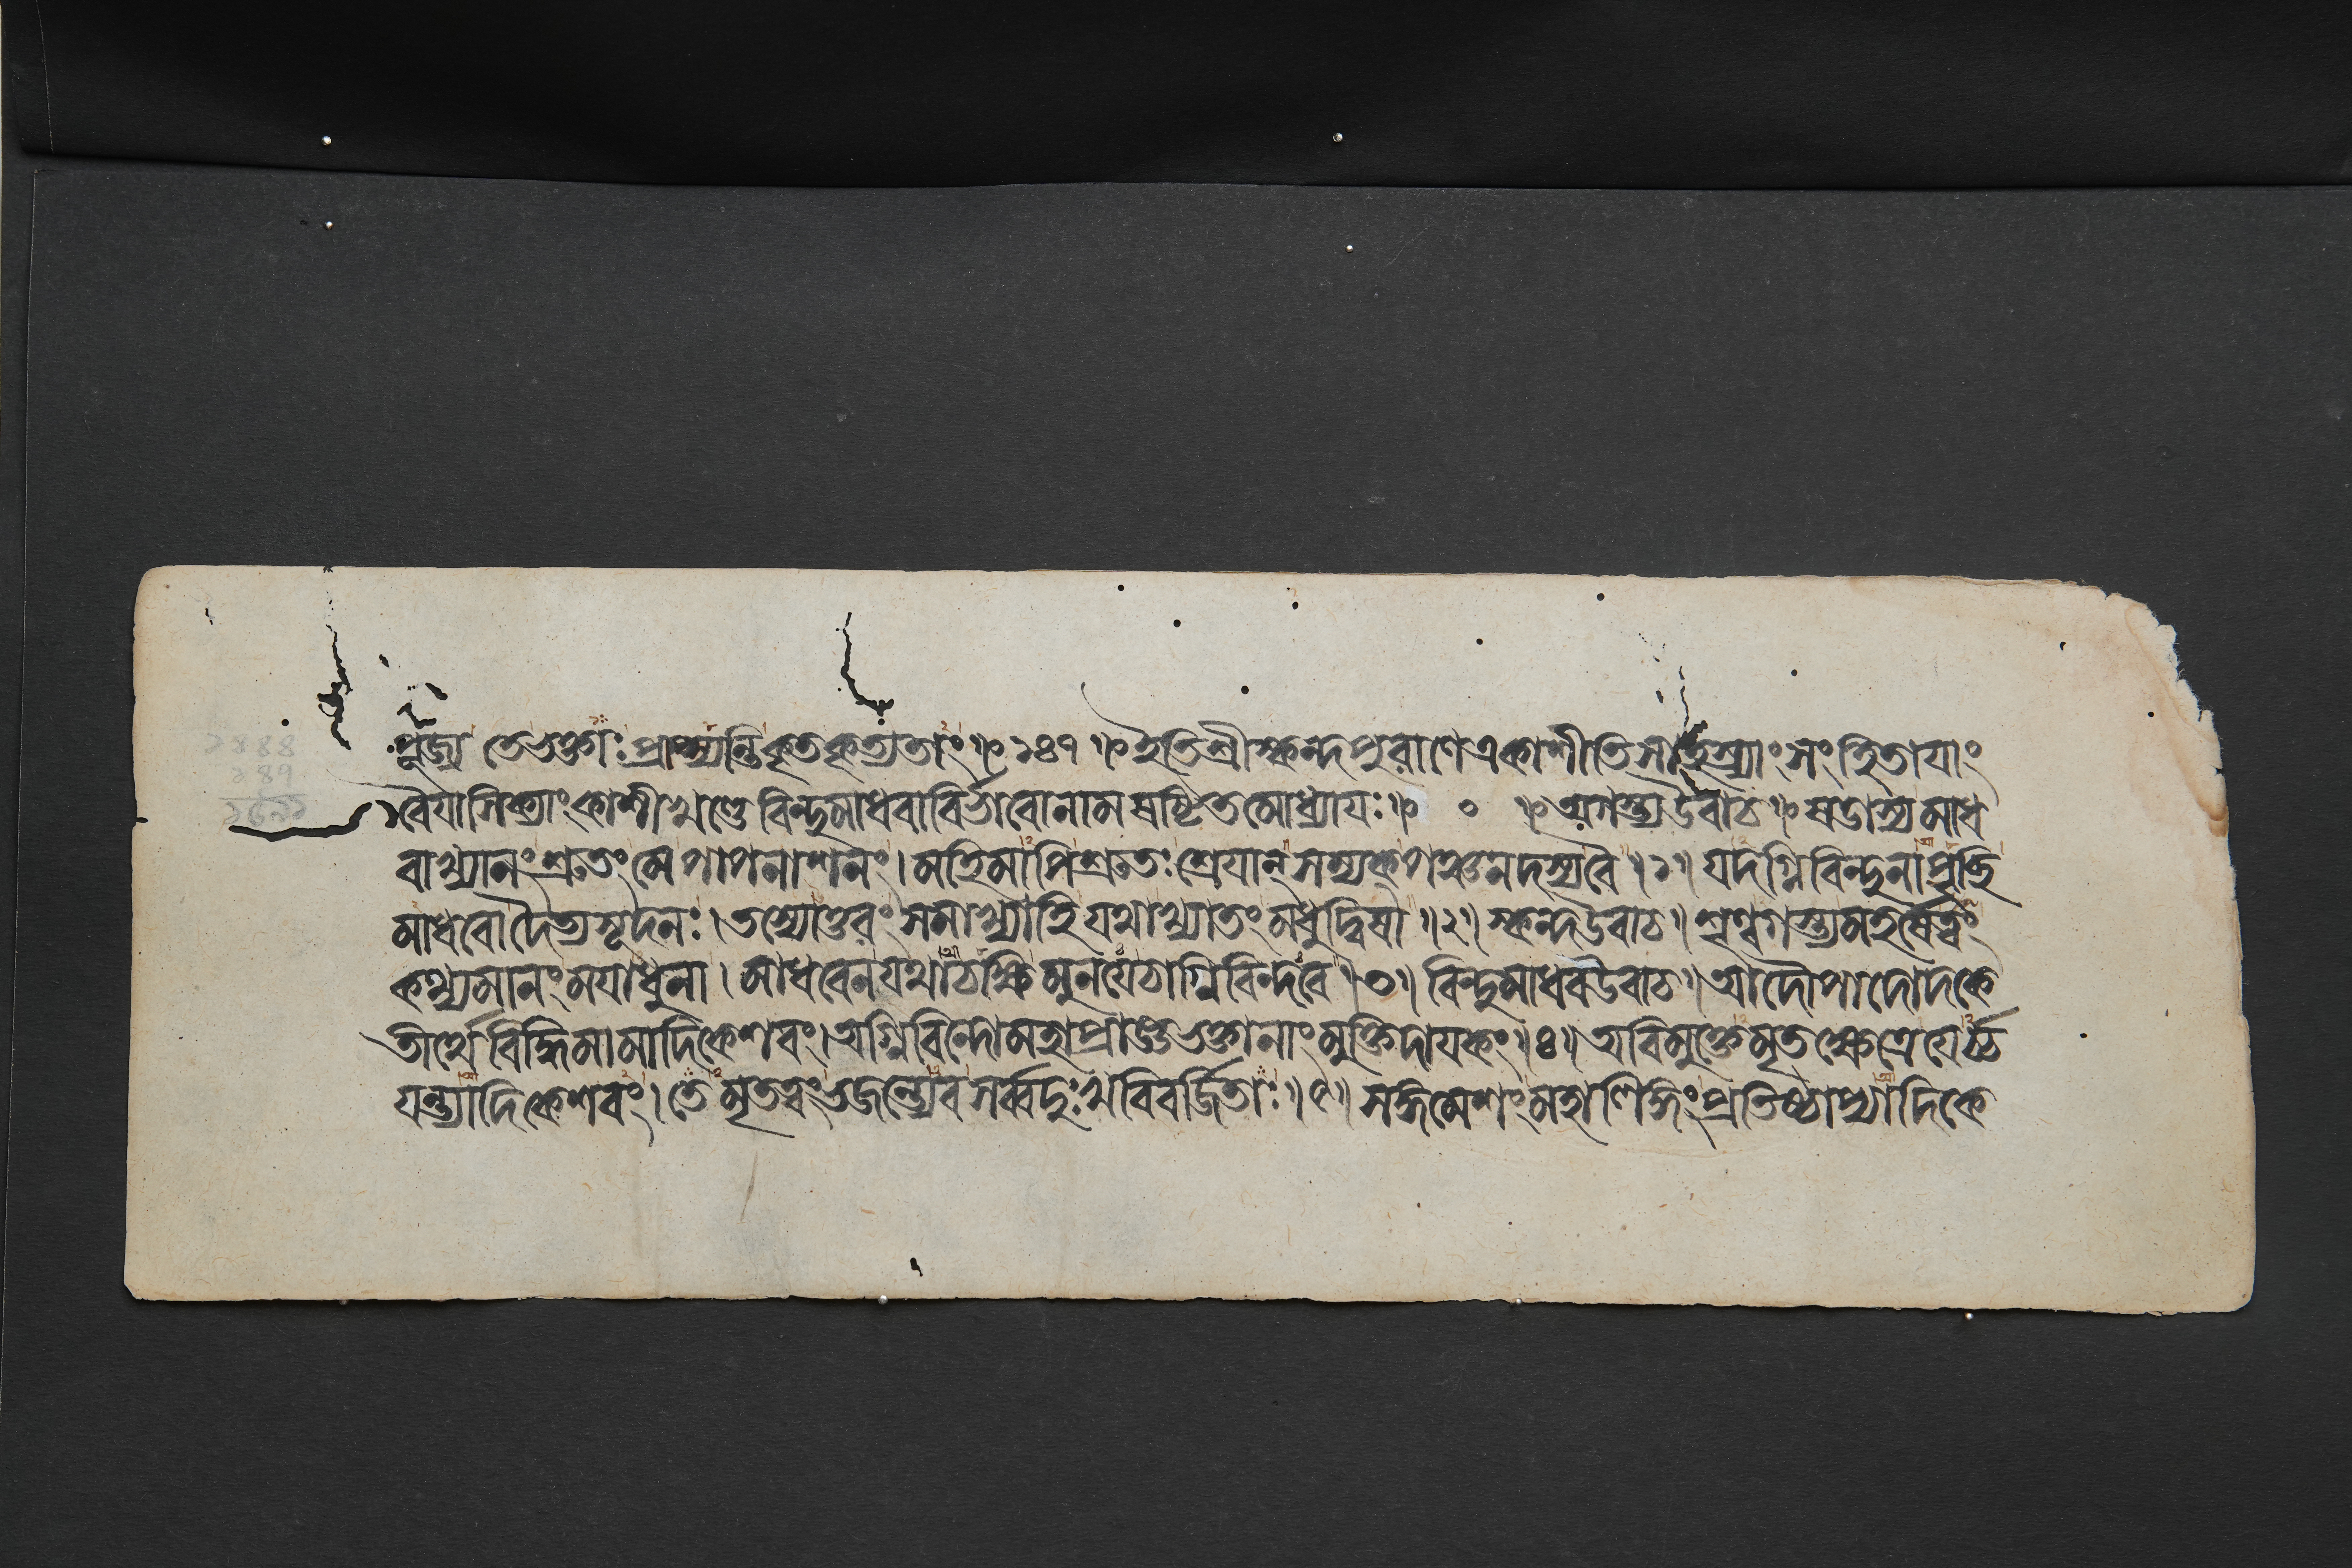 পূজ্য তে ভক্তাঃ প্রাপ্স্যন্তি কৃতকৃত্যতাং ॥ ১৪৭ ॥ ইতি শ্রীস্কন্দপুরাণে একাশীতিসাহস্র্যাং সংহিতাযাং
বৈযাসিক্যাং কাশীখণ্ডে বিন্দুমাধবাবির্ভাবোনাম ষষ্টিতমোধ্যাযঃ ॥ ० ॥ অগস্ত্য উবাচ ॥ ষডাস্য মাধ
বাখ্যানং শ্রুতং মে পাপনাশনং । মহিমাপি শ্রুতঃ শ্রেযান্ সম্যক্ পঞ্চনদস্য বৈ ॥ ১ ॥ যদগ্নিবিন্দুনা পৃচ্ছি
মাধবো দৈত্যসূদনঃ । তস্যোত্তরং সমাখ্যাহি যথাখ্যাতং মধুদ্বিষা ॥ ২ ॥ স্কন্দ উবাচ ॥ শৃণ্বগস্ত্য মহর্ষে ত্বং
কথ্যমানং মযাধুনা । মাধবেন যথাচক্ষি মুনযে চাগ্নিবিন্দবে ॥ ৩ ॥ বিন্দুমাধব উবাচ ॥ আদৌ পাদোদকে
তীর্থে বিদ্ধি মামাদিকেশবং । অগ্নিবিন্দো মহাপ্রাজ্ঞ ভক্তানাং মুক্তিদাযকং ॥ ৪ ॥ অবিমুক্তেমৃতক্ষেত্রে যের্চ্চ
যন্ত্যাদিকেশবং । তেমৃতত্বং ভজন্ত্যেব সর্ব্বদুঃখবিবর্জ্জিতাঃ ॥ ৫ ॥ সঙ্গমেশং মহালিঙ্গং প্রতিষ্ঠাপ্যাদিকে